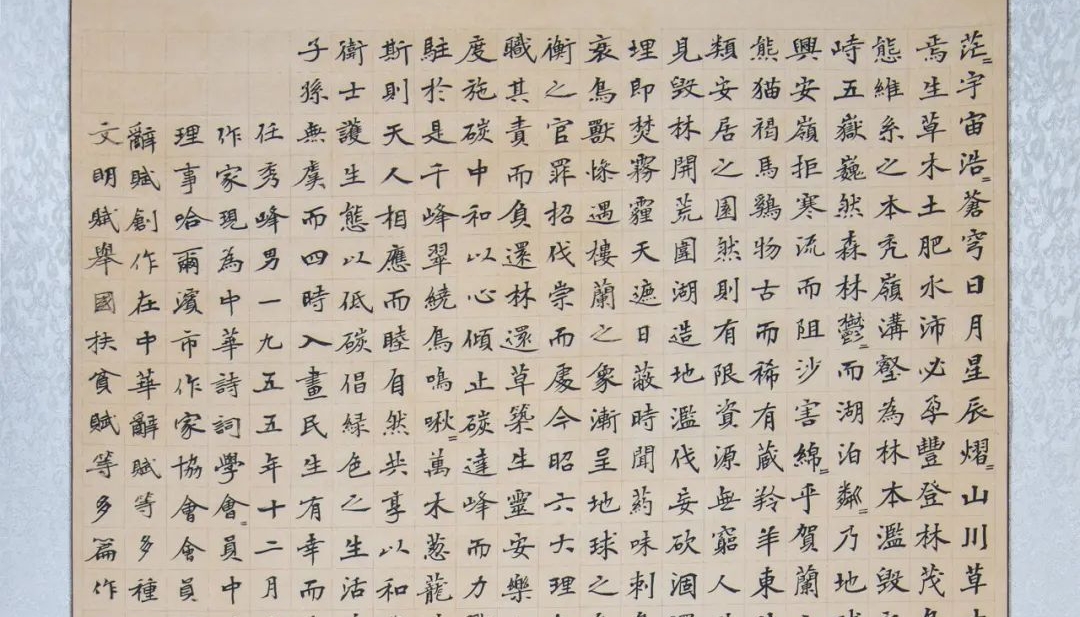 茫〻宇宙浩〻蒼穹日月星辰熠〻山川草
焉生草木土肥水沛必孕豐登林茂
態維系之本禿嶺溝壑為林本濫毀
峙五嶽巍然森林鬱〻而湖泊粼〻乃地
興安嶺拒寒流而阻沙害綿〻乎賀蘭
熊猫褐馬鷄物古而稀有蔵羚羊東
類安居之園然則有限資源無窮人
見毀林開荒圍湖造地濫伐妄砍涸
埋即焚霧霾天遮日蔽時聞药味刺
衰鳥獸遇樓蘭之象漸呈地球之
衡之官罪招伐祟而處今昭六大理
職其責而負還林還草築生靈安樂
度施碳中和以心傾止碳達峰而力
駐於是千峰翠繞鳥鳴啾〻萬木葱蘢
斯則天人相應而睦自然共享以和
衛士護生態以低碳倡緑色之生活
子孫無虞而四時入畫民生有幸而
任秀峰男一九五五年十二月
作家現為中華詩詞學會〻員中
理事哈爾濱市作家協會會員
辭賦創作在中華辭賦等多種
文明賦舉國扶貧賦等多篇作